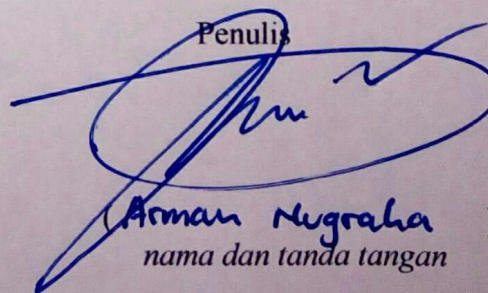 Penulis
(Arman Nugraha
nama dan tanda tangan